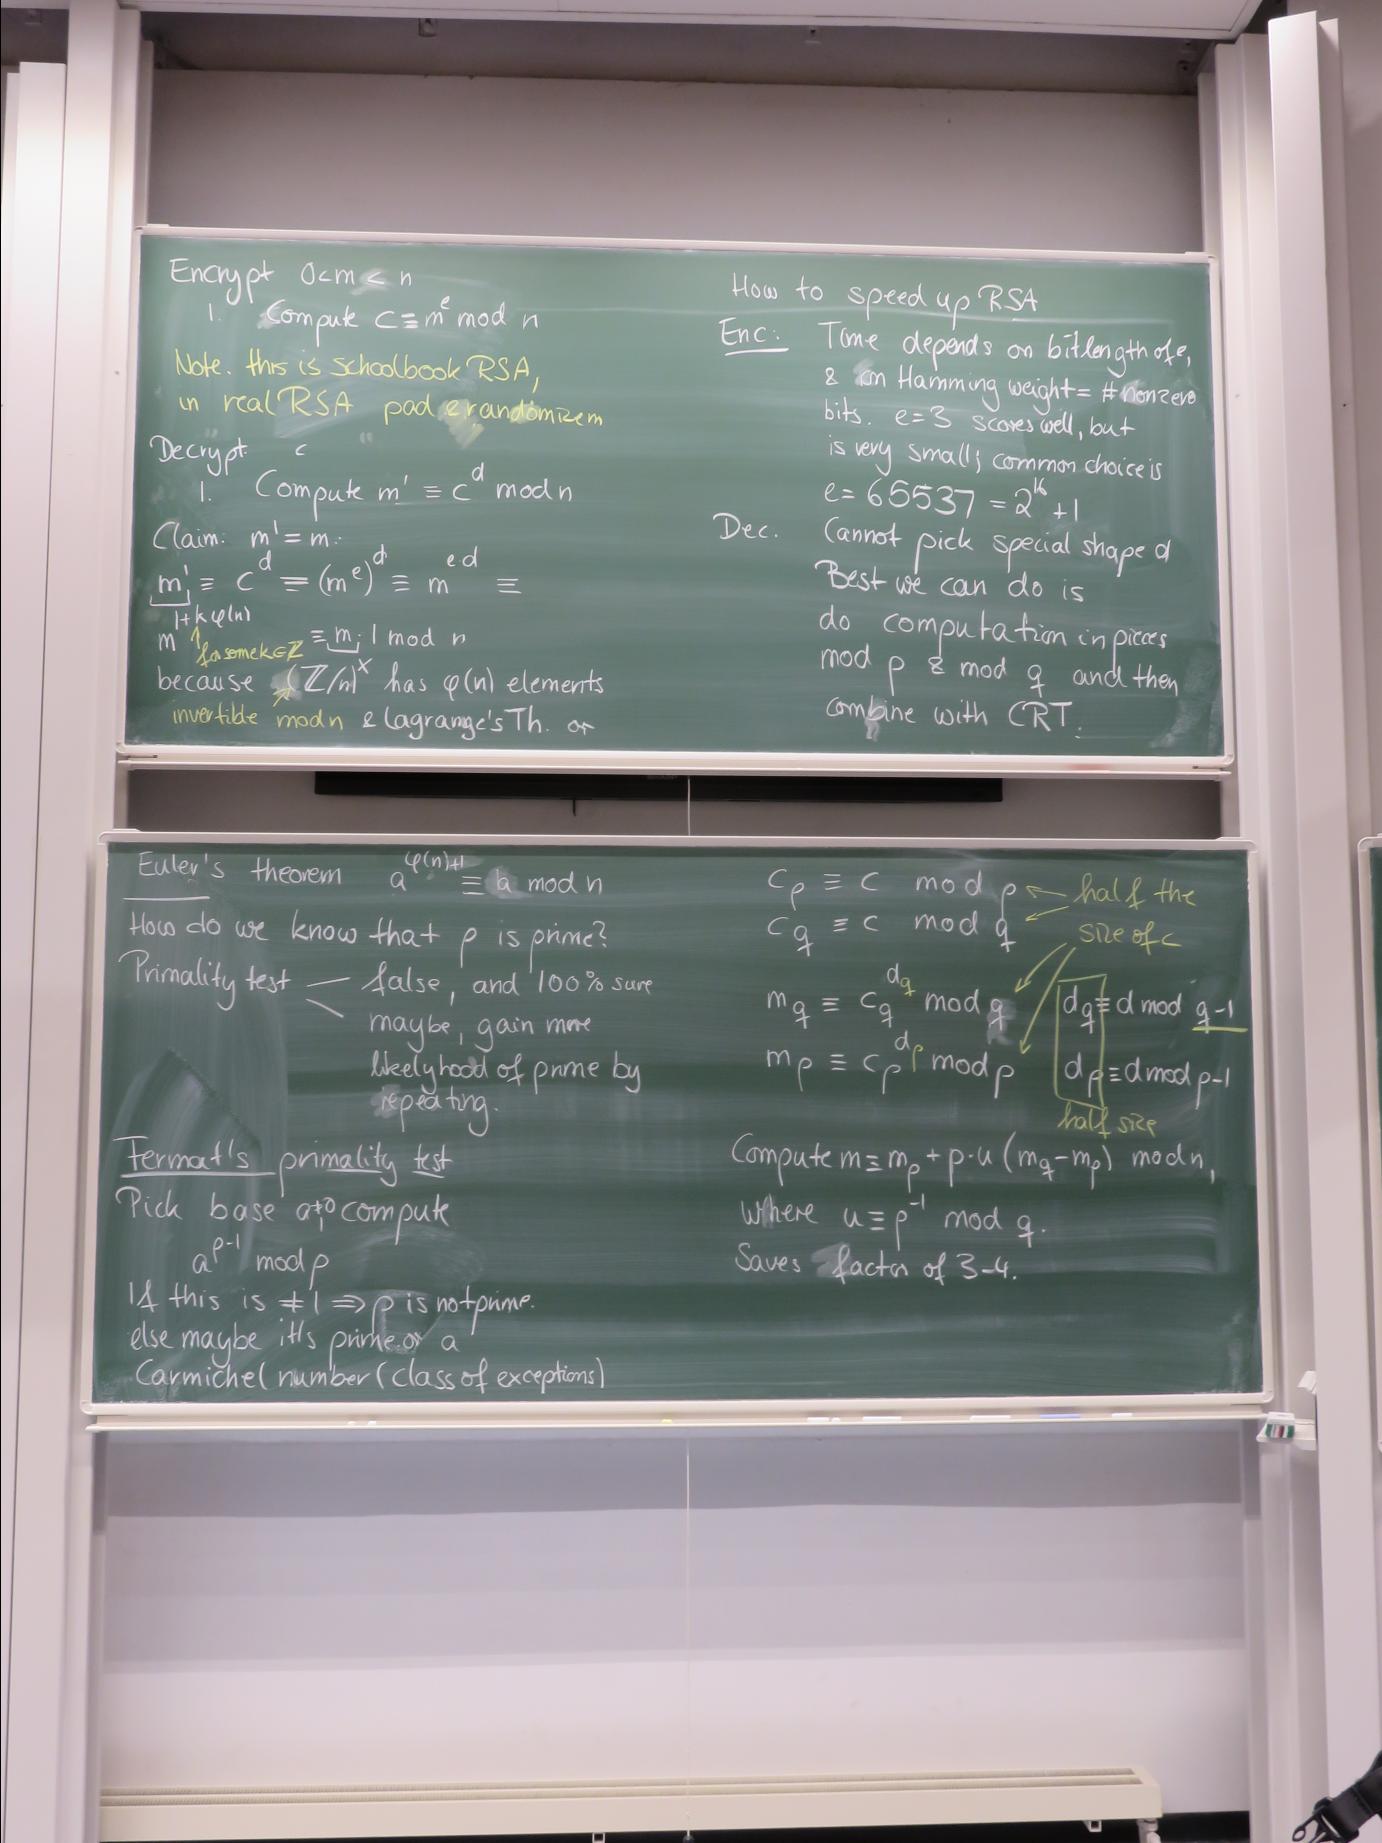 Encrypt 0<m<n
1. Compute c≡m^e mod n
Note. this is schoolbook RSA,
in real RSA pad & randomize m
Decrypt c
1. Compute m' ≡ c^d mod n
Claim: m' = m.
m' ≡ c^d ≡ (m^e)^d ≡ m^ed ≡
m^1+kφ(n) ≡ m · 1 mod n
for some k∈ℤ
because (ℤ/n)^× has φ(n) elements
invertible mod n & Lagrange's Th. or
How to speed up RSA
Enc: Time depends on bitlength of e,
& on Hamming weight = #nonzero
bits. e=3 scores well, but
is very small; common choice is
e = 65537 = 2^16 + 1
Dec. Cannot pick special shape d
Best we can do is
do computation in pieces
mod p & mod q and then
combine with CRT.
Euler's theorem a^φ(n)+1 ≡ a mod n
How do we know that p is prime?
Primality test — false, and 100% sure
maybe, gain more
likelyhood of prime by
repeating.
Fermat's primality test
Pick base a≠0 compute
a^p-1 mod p
If this is ≠1 ⇒ p is not prime.
else maybe it's prime or a
Carmichel number (class of exceptions)
c_p ≡ c mod p ← half the
c_q ≡ c mod q size of c
m_q ≡ c_q^d_q mod q d_q ≡ d mod q-1
m_p ≡ c_p^d_p mod p d_p ≡ d mod p-1
half size
Compute m ≡ m_p + p·u (m_q - m_p) mod n,
where u ≡ p^-1 mod q.
Saves factor of 3-4.